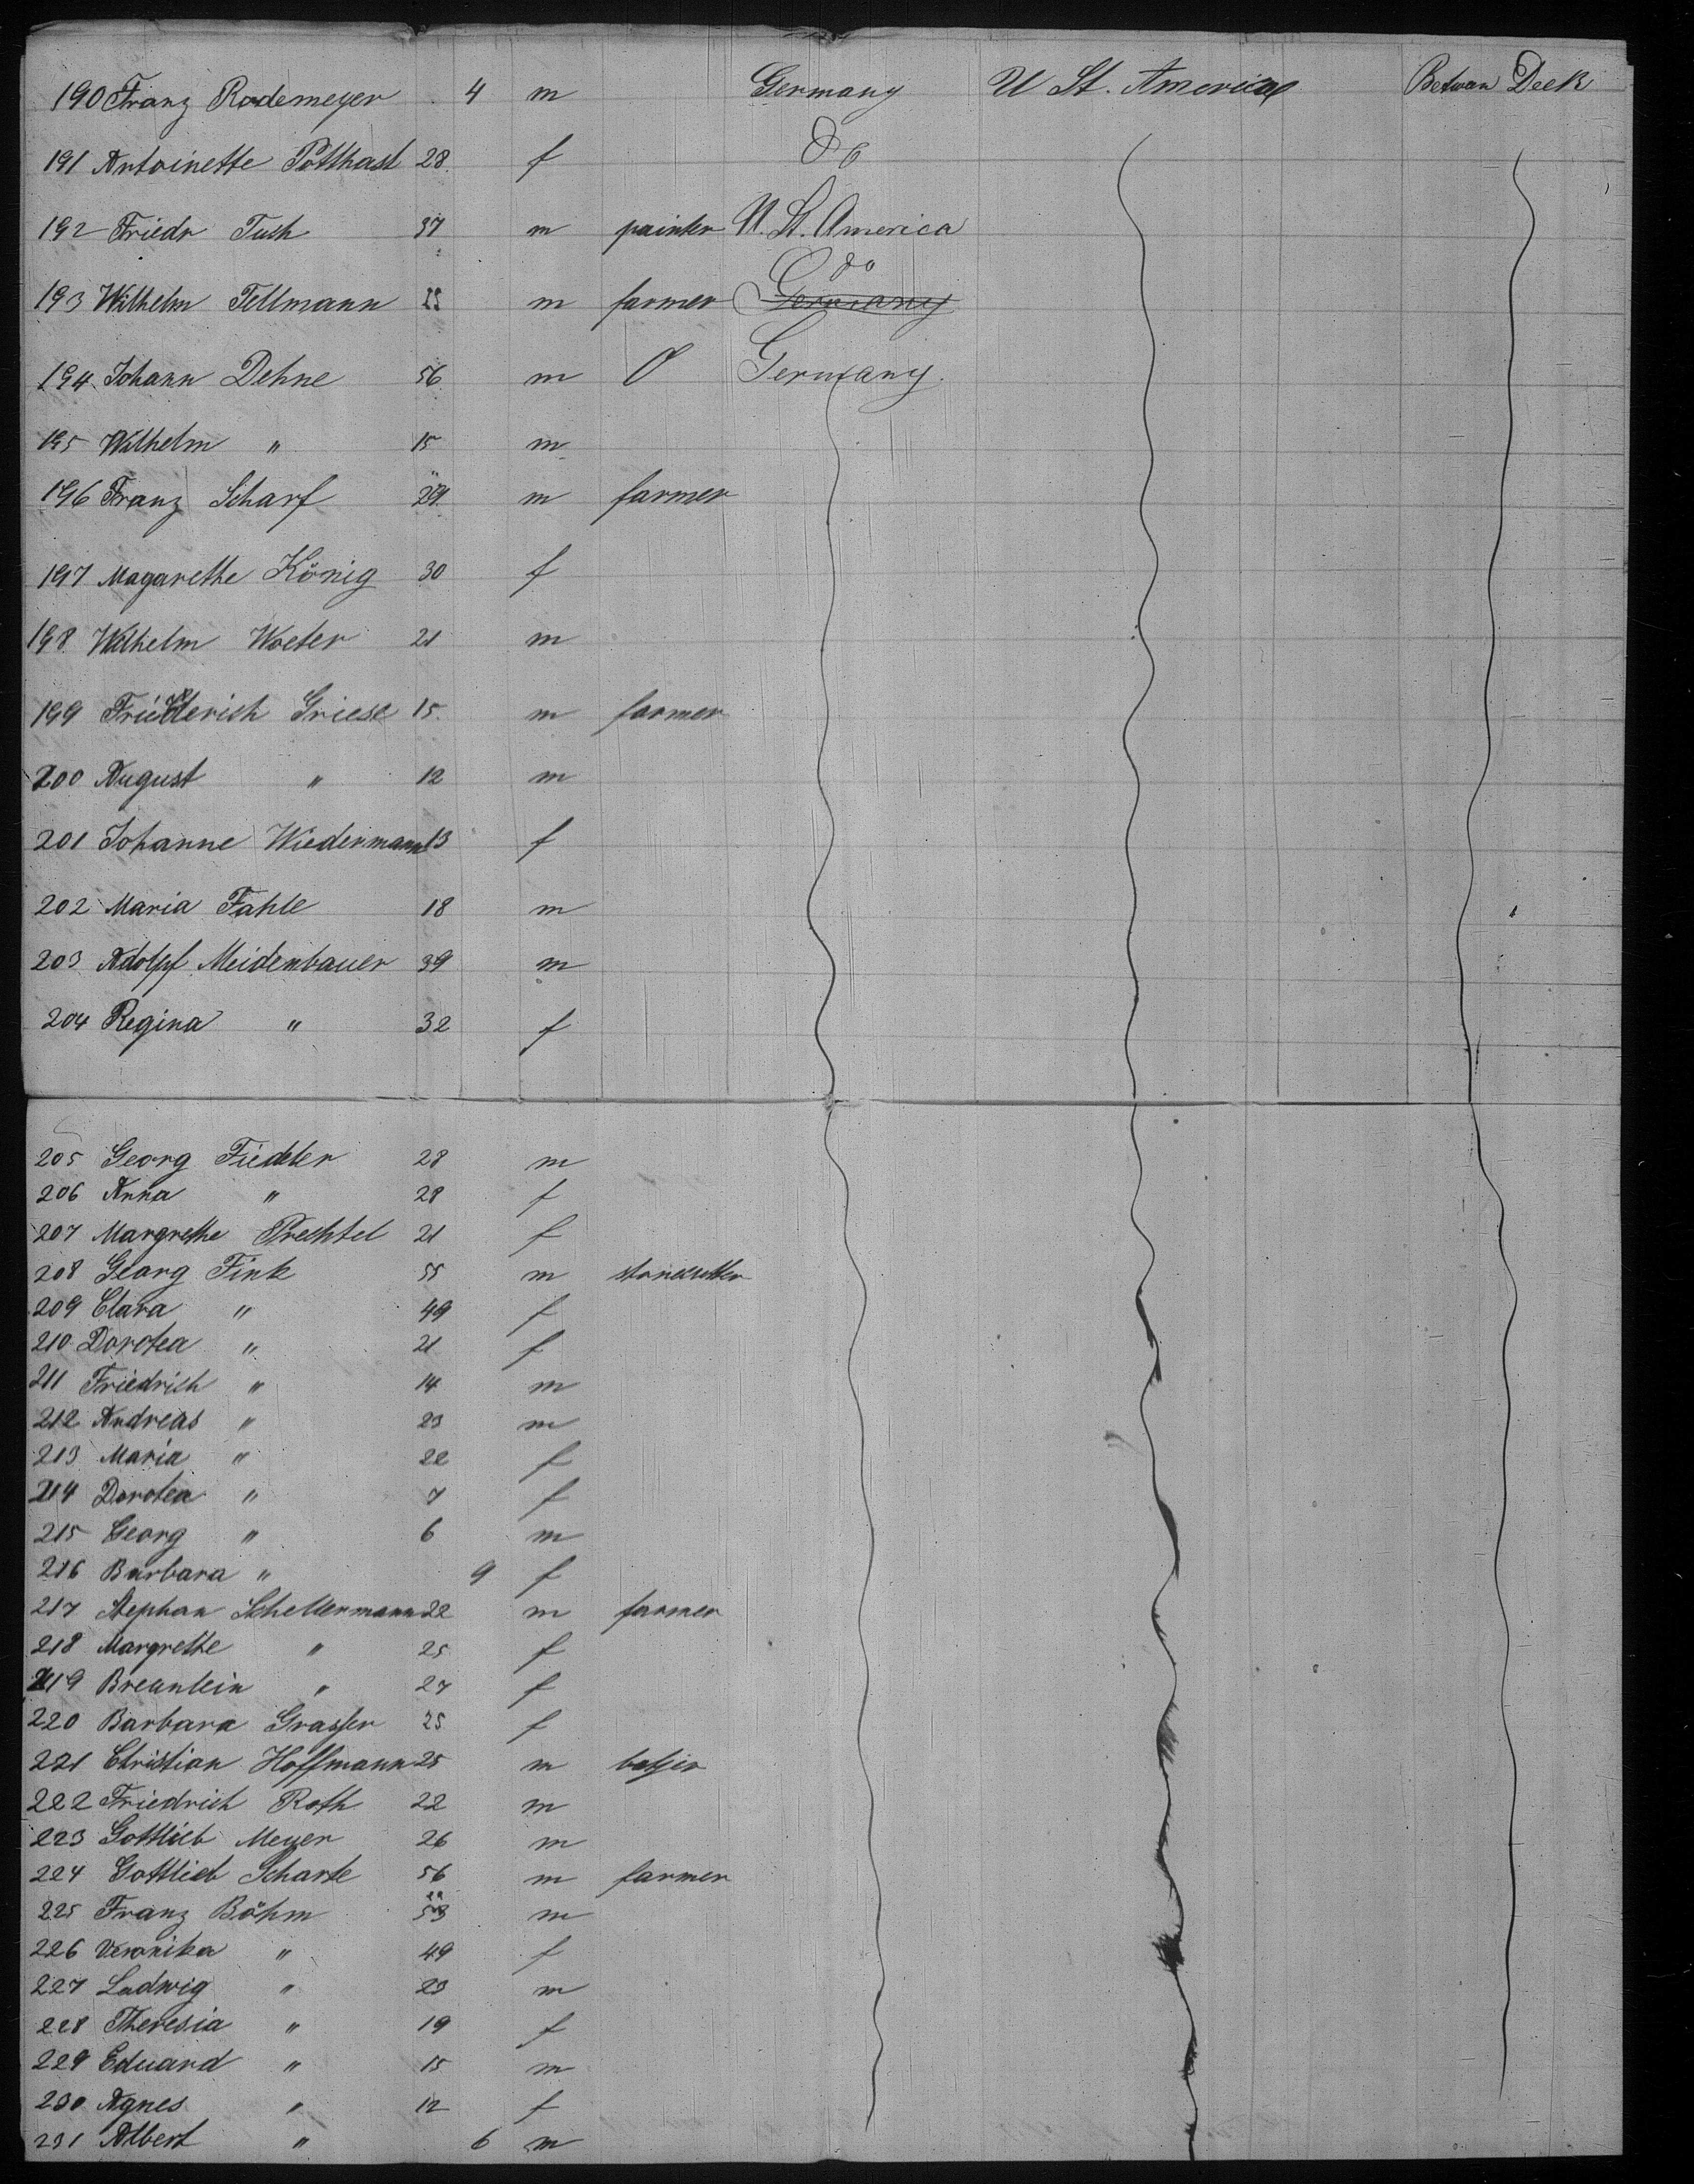 190 Franz Rodemeyer 4 m Germany U St. America Betwen Deck
191 Antoinette Potthast 28 f do
192 Friedr Tush 37 m painter U. St. America
193 Wilhelm Tellmann m farmer do Germany
194 Johann Dehne 56 m O Germany.
195 Wilhelm " 15 m
196 Franz Scharf 29 m farmer
197 Magarethe König 30 f
198 Wilhelm Woeter 21 m
199 Friederich Griese 15 m farmer
200 August " 12 m
201 Johanne Wiedermann 13 f
202 Maria Fahle 18 m
203 Adolpf Meidenbauer 39 m
204 Regina " 32 f
205 Georg Fiedeler 28 m
206 Anna " 28 f
207 Margrethe Prechtel 21 f
208 Georg Fink 55 m
209 Clara " 49 f
210 Dorotea " 21 f
211 Friedrich " 14 m
212 Andreas " 23 m
213 Maria " 22 f
214 Dorotea " 7 f
215 Georg " 6 m
216 Barbara " 9 f
217 Stephan Schellermann 22 m farmer
218 Margrethe " 25 f
219 Breunlein " 27 f
220 Barbara Grasser 25 f
221 Christian Hoffmann 25 m
222 Friedrich Roth 22 m
223 Gottlieb Meyer 26 m
224 Gottlieb Scharfe 56 m farmer
225 Franz Böhm 53 m
226 Veronika " 49 f
227 Ludwig " 23 m
228 Theresia " 19 f
229 Eduard " 15 m
230 Agnes " 12 f
231 Albert " 6 m